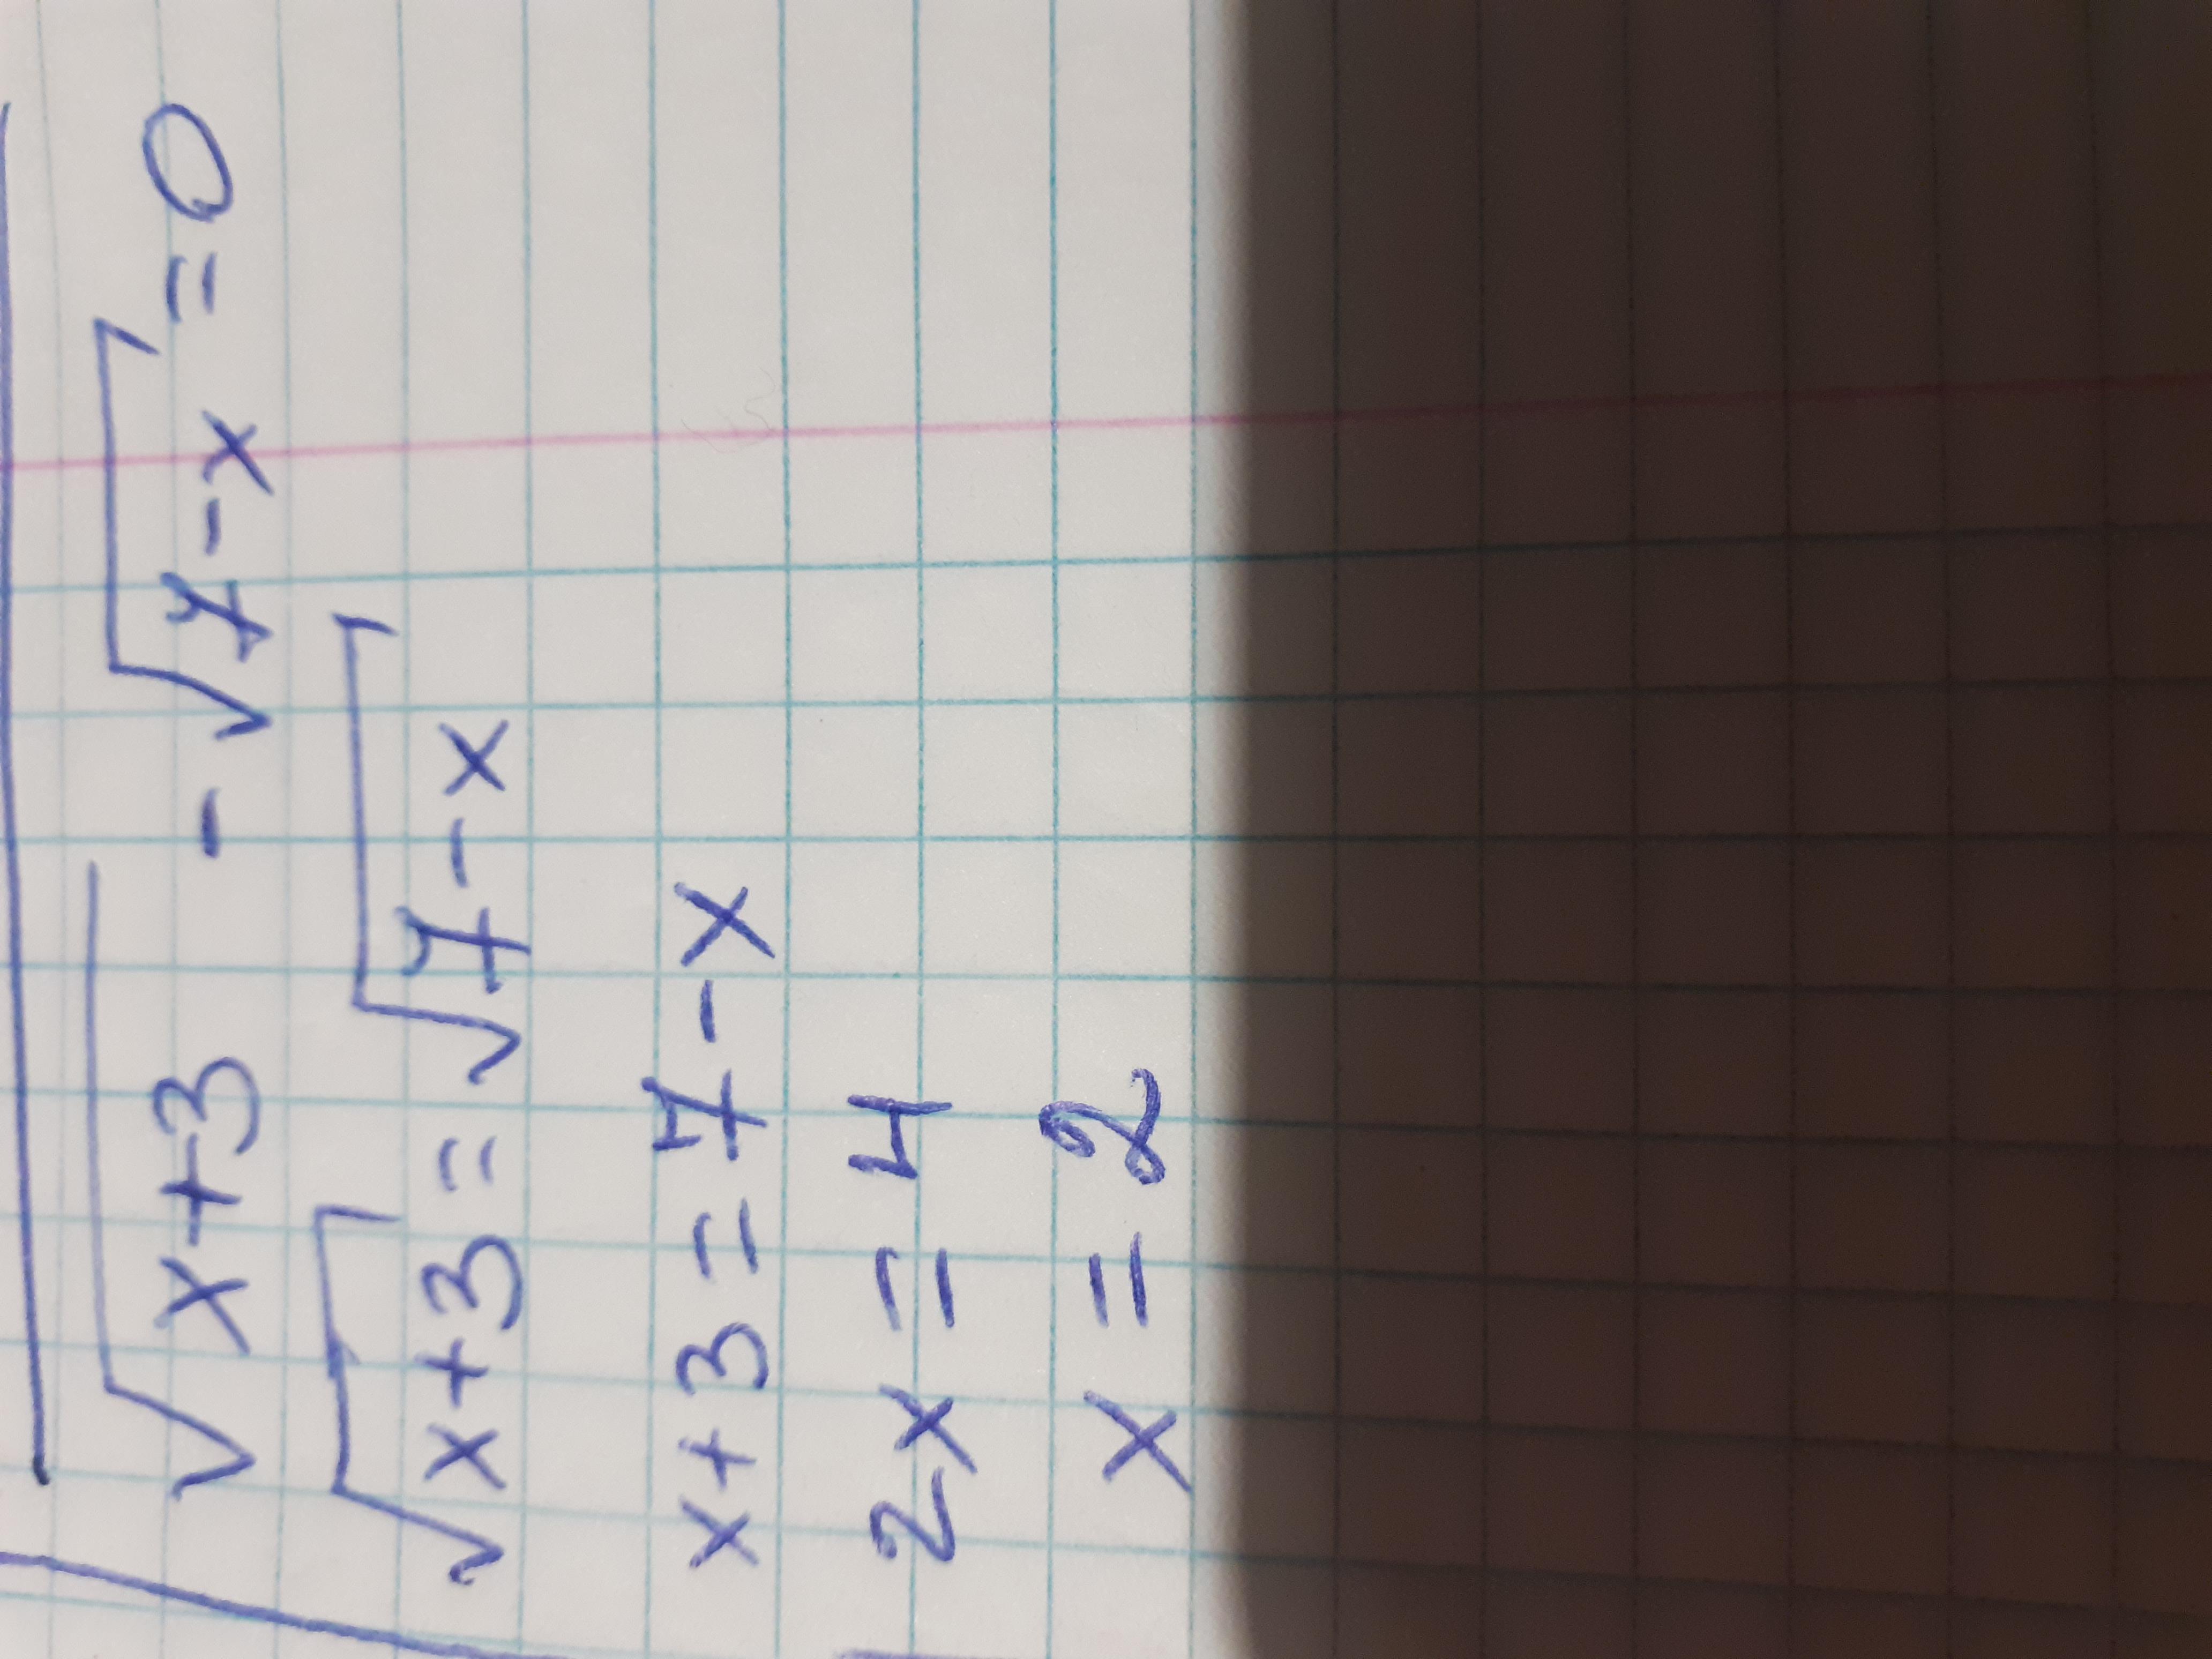 √x+3 - √7-x = 0
√x+3 = √7-x
x+3 = 7-x
2x = 4
x = 2